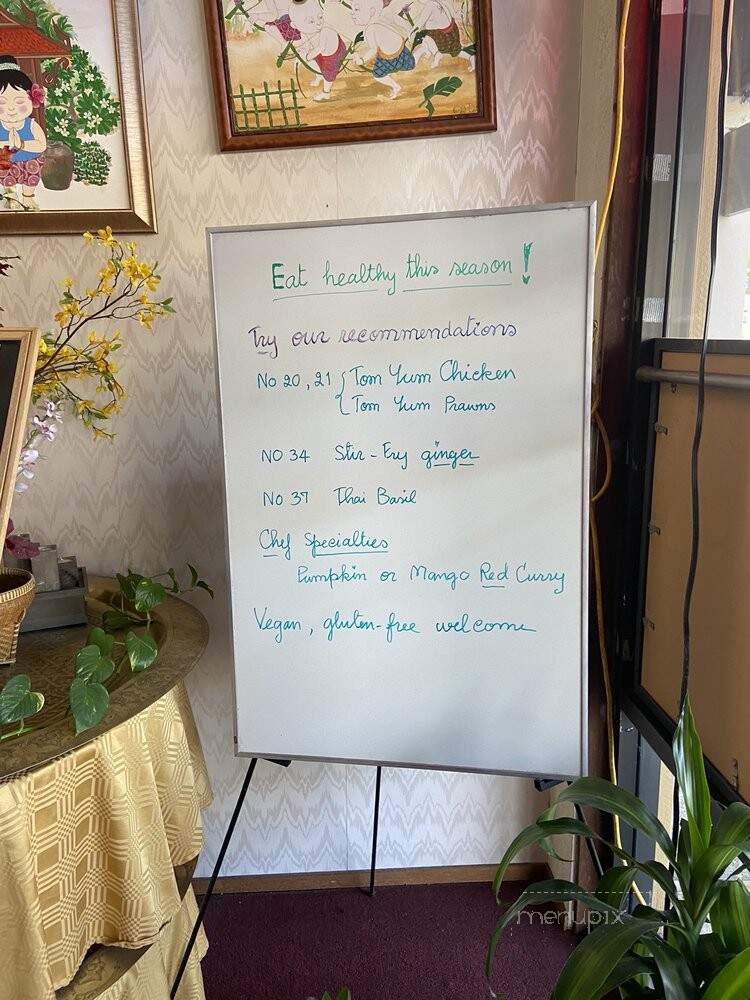 Eat healthy this season!
Try our recommendations
No 20, 21 { Tom Yum Chicken
Tom Yum Prawns
NO 34 Stir-Fry ginger
NO 37 Thai Basil
Chef Specialties
Pumpkin or Mango Red Curry
Vegan, gluten-free welcome
menupix